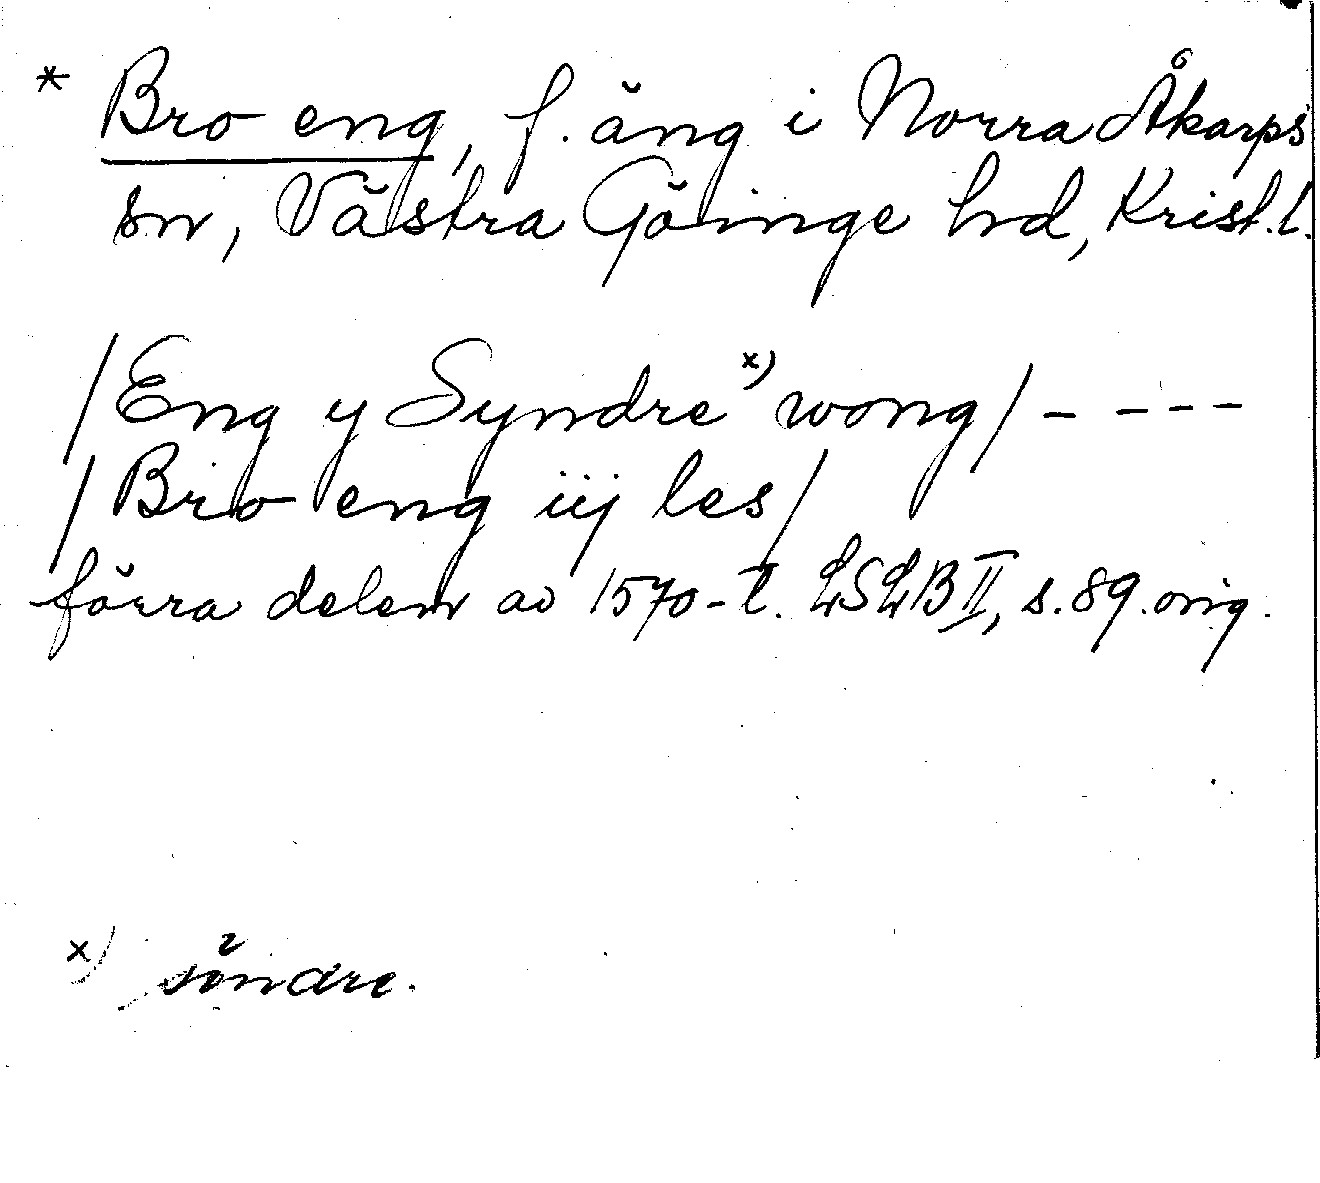 * Bro eng, f. äng i Norra Åkarps
sn, Västra Göinge hd, Krist. l.
/Eng y Syndre x) wong/ - - - -
/Bro eng iij les/
förra delen av 1570-t. LSLB II, s. 89. orig.
x) söndre.